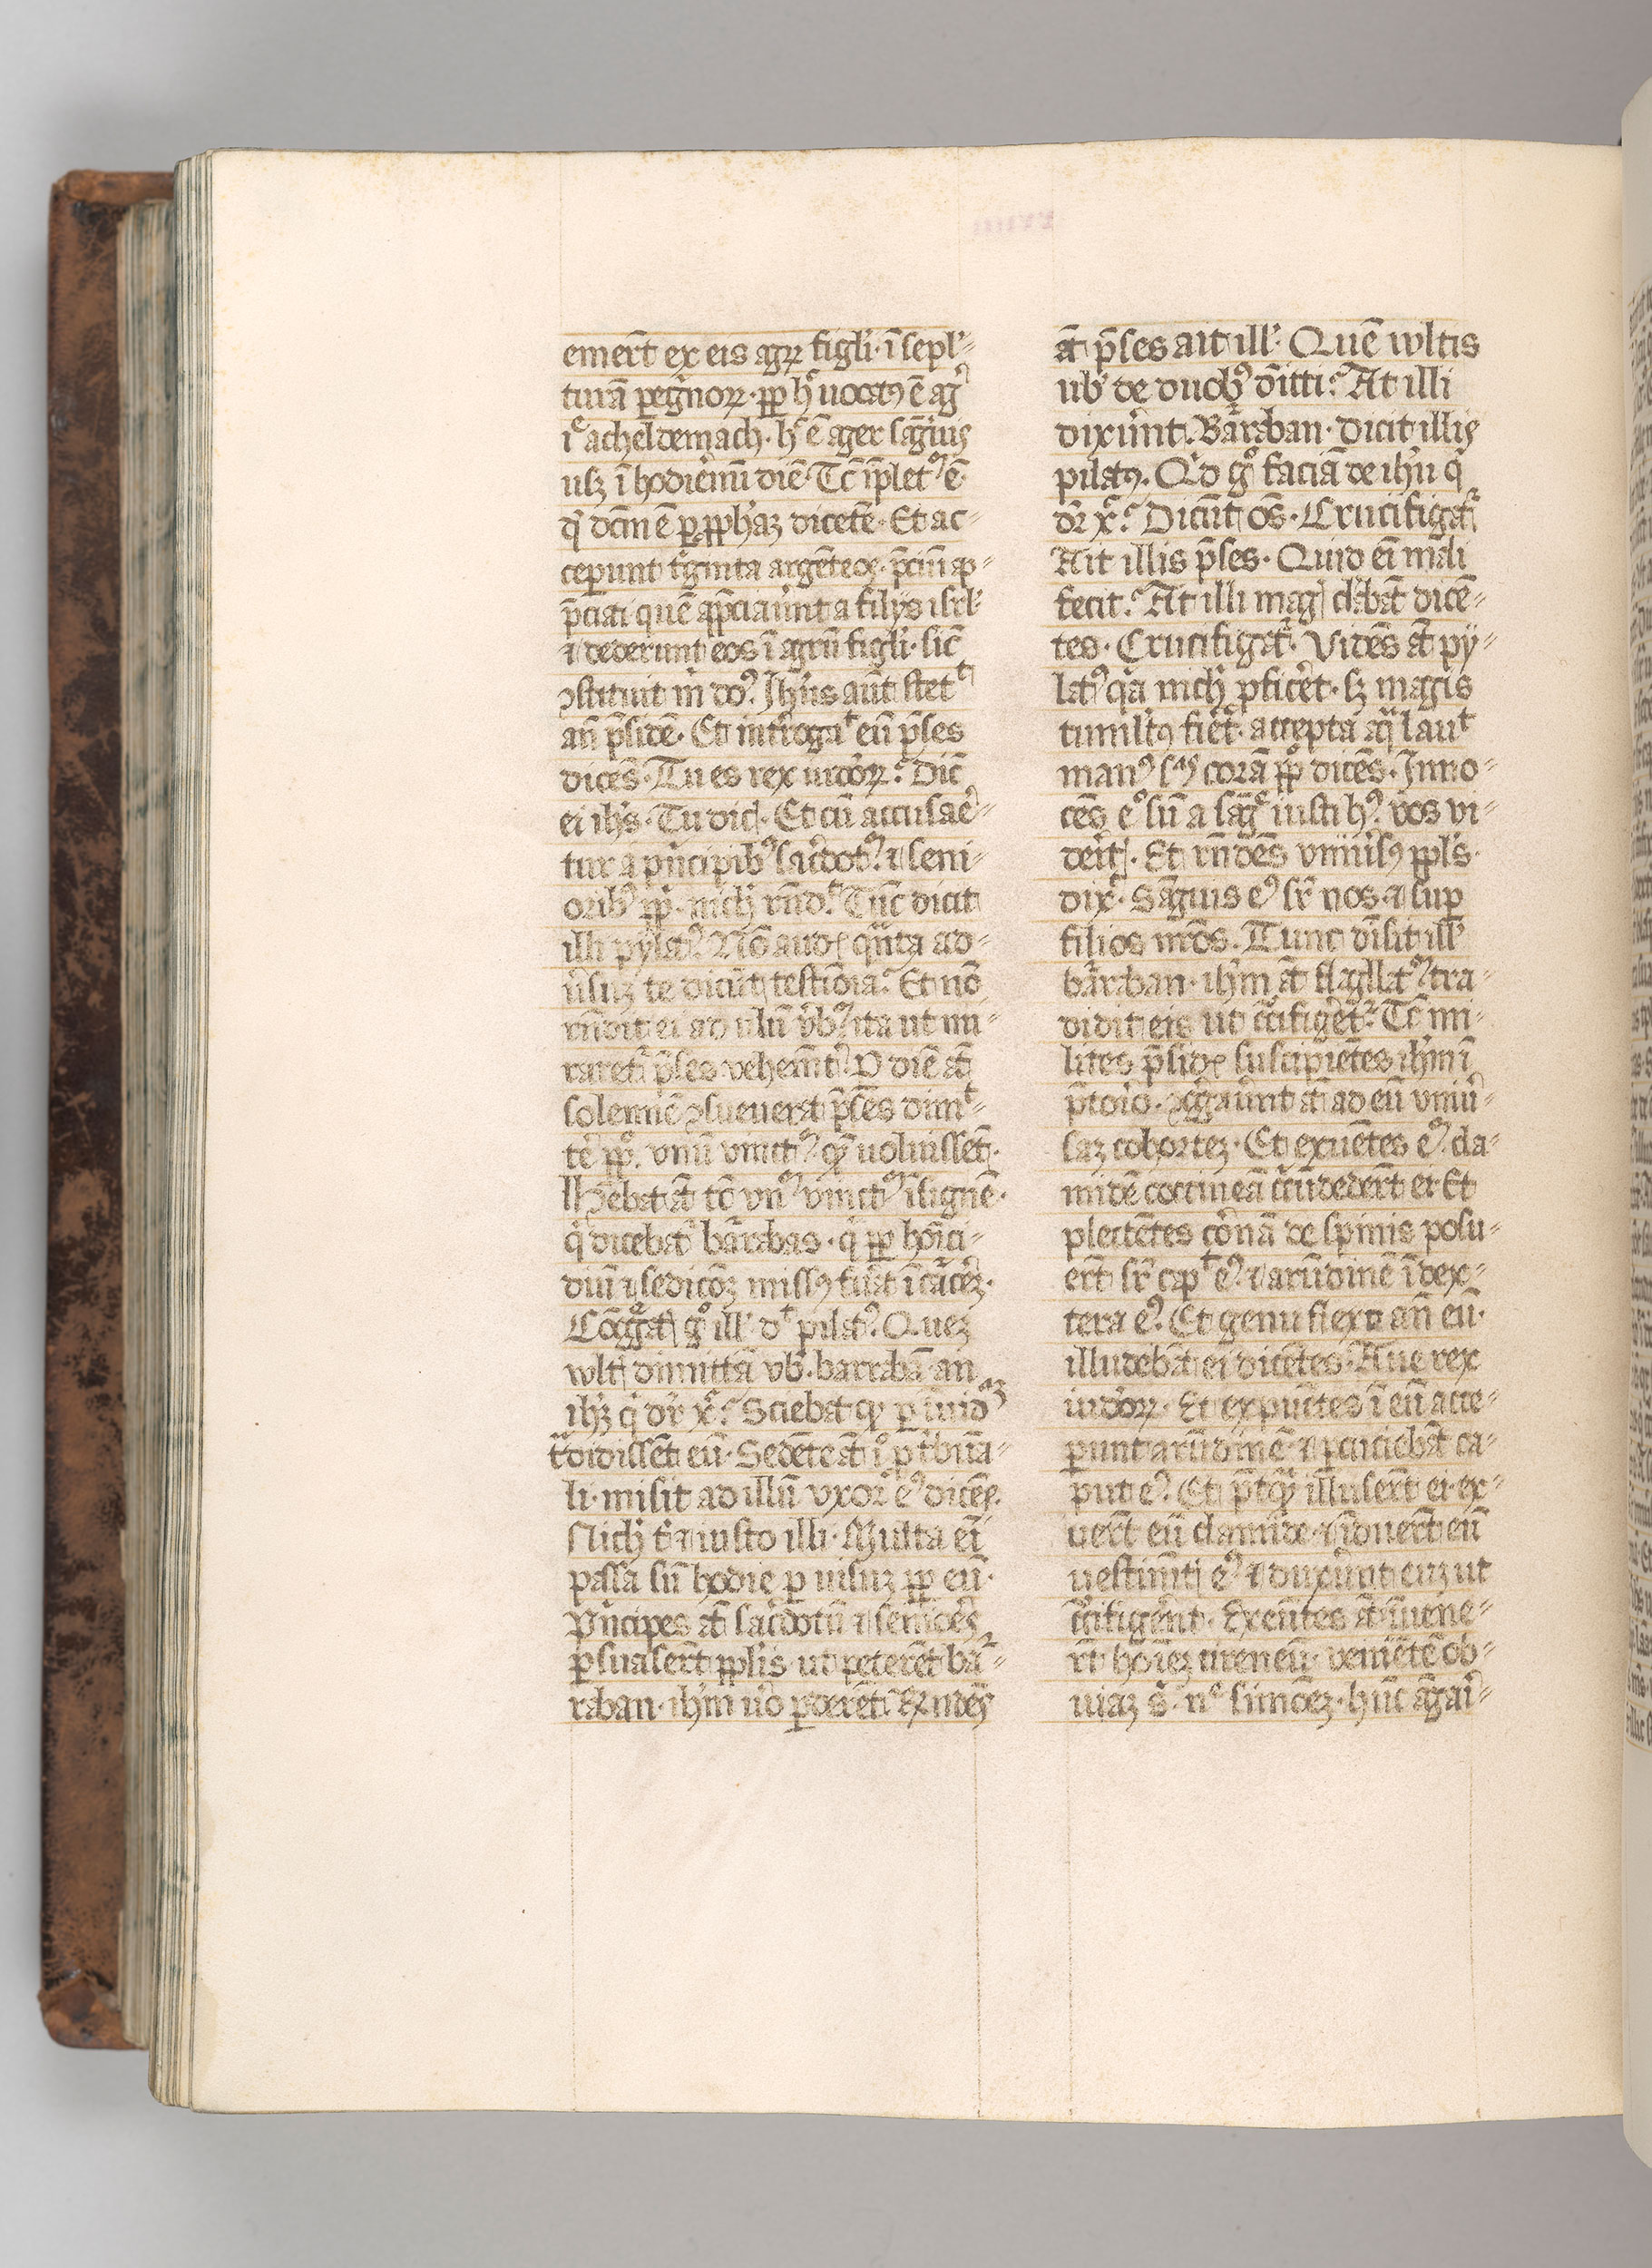 emert̄ ex eis agrꝝ figli̕· ī sepl̕⸗
turā pegͥnorꝝ· ꝓp hͨ uocatꝰ ē agͬ
iͤ acheldemach· hͨ ē ager sāgͥnis
usqꝫ ī hodiernū diē· Tc̄ īpletꝰ ē
qͩ dc̄m ē ꝑ ꝓph̕aꝫ dicētē· Et ac⸗
cepunt tͥginta argēteos· p̄ciū ap⸗
p̄ciati quē app̄ciauer̄nt a filijs isrl̕
⁊ dederunt eos ī agrū figli̕· sic̄
ꝯstituit m̄ doꝰ. Ihūs aut̄ stetͭ
an̄ p̄sidē· Et int̄rogaͭ eū p̄ses
dicēs· Tu es rex iudōrꝝ? Dic̄
ei ihs̄· Tu dicꝭ· Et cū accusar̄e⸗
tur a pͥncipibꝰ sac̄dotū ⁊ seni⸗
oribꝰ ppl̕i· nich̕ rn̄dͭ. Tūc dicit
illi pylatꝰ. Nō audꝭ quāta ad⸗
uersuꝫ te dicūt testīoīa? Et nō
rn̄dit ei ad ullū v̄bū· ita ut mi⸗
raretͬ p̄ses vehemt̄er· P diē āt
solemnē ꝯsueuerat p̄ses dimͭ⸗
te pplo̕· unū vinctū quē uoluissent·
Hēbat āt tc̄ vnū vinctū īsignē·
qͥ dicebatͬ barrabas· qͥ ꝓp homici⸗
diū ⁊ sedicōeꝫ missꝰ fuāt ī carcerē·
Cōgͤgātꝭ gͦ ill̕ dͭ pilatꝰ. Queꝫ
wltꝭ dimittā vob̄· barrabā an
ih̄ꝫ qͥ dr̄ xp̄c? Sciebat qͩ ꝑ inuidͣꝫ
tͣdidissēt eū· Sedēte āt iͦ ꝓ tͥbuna⸗
li· misit ad illū vxor eꝰ dicēs·
Nich̕ tͥ ⁊ iusto illi· Multa eī
passa sū hodie ꝑ uisuꝫ ꝓp eū·
Pͥncipes āt sac̄dotū ⁊ seniores
ꝑsuaserūt ppl̕is· ut peterēt ba⸗
raban· ih̄m uͦ ꝑderēt· Rn̄dēs
āt p̄ses ait ill̕· Quē wltis
ub̕ de duobꝰ dīitti? At illi
dixer̄unt· Barraban· Dicit illis
pilatꝰ. Qͩ gͦ faciā de ih̄u qͥ
dr̄ xp̄c? Dicūt om̄s· Crucifigatͬ
Ait illis p̄ses· Quid eī mali
fecit? At illi magꝭ cl̕abāt dicē⸗
tes· Crucifigatͬ· Vidēs āt py⸗
latꝰ qͣ nich̕ ꝓficeret· sꝫ magis
tumultꝰ fieret· accepta aqͣ lauͭ
manꝰ suas corā pplo̕ dicēs· Inno⸗
cēs egͦ sū a sāgͥe iusti hꝰ· vos vi⸗
deritꝭ· Et rn̄dēs vniuersꝰ ppl̕s·
dixͭ· Sāguis eꝰ sr̄ nos ⁊ sup
filios nr̄os· Tunc dīsit ill̕
barraban· ih̄m āt flagllatū tra⸗
didit eis ut crucifigeretͬ· Tc̄ mi⸗
lites p̄sidꝭ suscipiētes ih̄m ī
p̄toriō· ꝯgͤgauer̄nt ad eū vniuͬ⸗
saꝫ cohorteꝫ· Et exuētes eū cla⸗
midē coccineā circūdedert̄ ei Et
plectētes coronā de spinis posu⸗
ert̄ sr̄ capͭ eꝰ· ⁊ arūdinē ī dex⸗
tera eꝰ. Et genu flexo an̄ eū·
illudebāt ei dicētes· Aue rex
iudōrꝝ· Et expuētes ī eū acce⸗
punt arūdinē ⁊ ꝑcuciebāt ca⸗
put eꝰ. Et p̄tquā illusert̄ ei· ex⸗
uert̄ eū clamide ⁊ īduert̄ eū
uestimētꝭ eꝰ ⁊ duxer̄nt euꝫ ut
crucifigerēt· Exeūtes āt īuene⸗
rt̄ ho̅ieꝫ cireneū· venientē ob⸗
uiaꝫ sͥ· nͤ simōeꝫ· hūc āgaͥ⸗